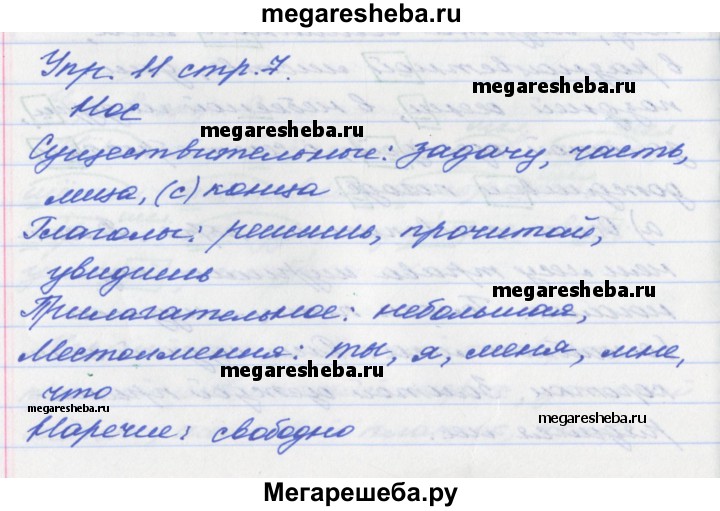 megaresheba.ru
Упр. 11 стр. 7.
megaresheba.ru
Нос
megaresheba.ru
Существительные: задачу, часть,
лица, (с) конца
Глаголы: решишь, прочитай,
увидишь
megaresheba.ru
Прилагательное: небольшая,
Местоимения: ты, я, меня, мне,
megaresheba.ru
что
megaresheba.ru
megaresheba.ru
Наречие: свободно
Мегарешеба.ру